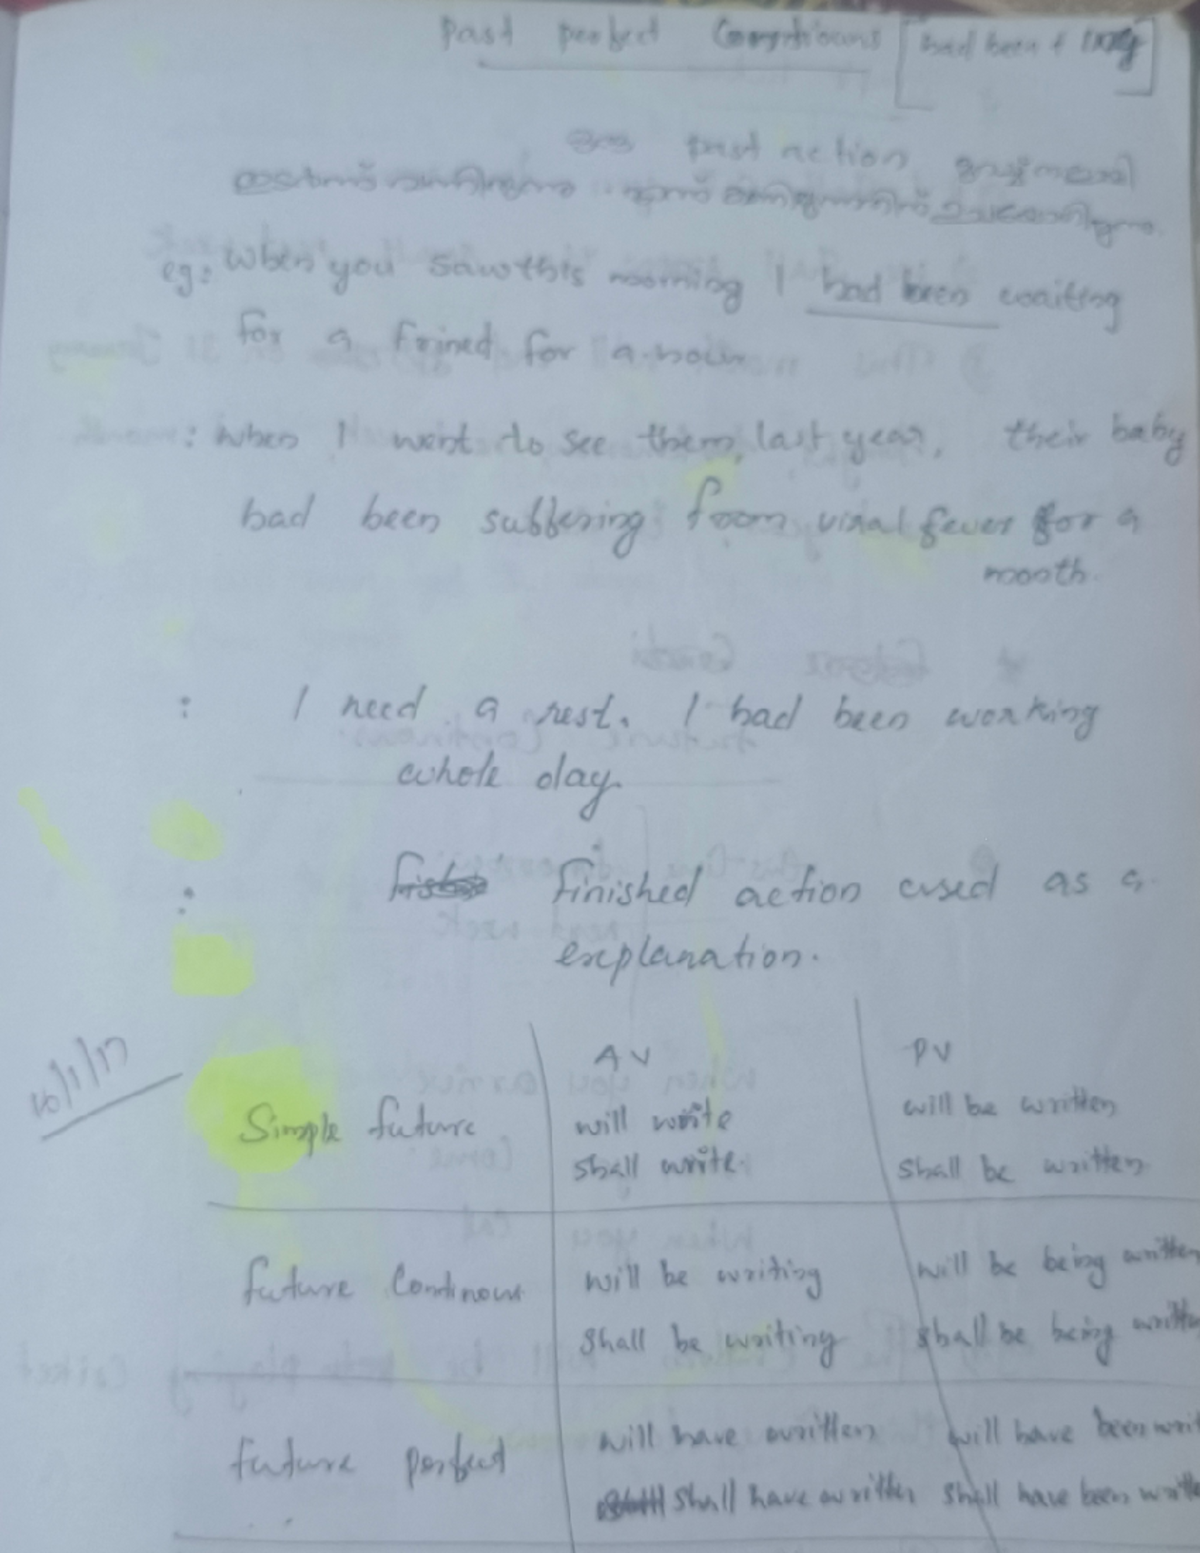 Past perfect Conntinouns [had been + ing]
ഒരു past action തുടർന്നതായി
eg: when you saw this morning I had been waiting
for a frined for a hour
: when I went to see them, last year, their baby
had been suffering from viral fever for a
month.
: I need a rest. I had been working
whole day.
: finished action used as a
explanation.
16/1/17
AV PV
Simple future will write will be written
shall write. shall be written.
future Continous will be writing will be being written
shall be writing shall be being writte
future perfect will have written will have been writ
shall have written shall have been writte